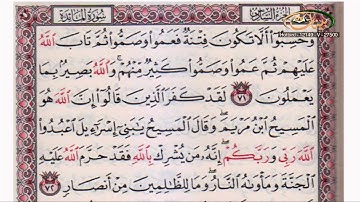 سورة المائدة
الجزء السادس
وَحَسِبُوٓا۟ أَلَّا تَكُونَ فِتْنَةٌ فَعَمُوا۟ وَصَمُّوا۟ ثُمَّ تَابَ ٱللَّهُ
عَلَيْهِمْ ثُمَّ عَمُوا۟ وَصَمُّوا۟ كَثِيرٌ مِّنْهُمْ ۚ وَٱللَّهُ بَصِيرٌۢ بِمَا
يَعْمَلُونَ ٧١ لَقَدْ كَفَرَ ٱلَّذِينَ قَالُوٓا۟ إِنَّ ٱللَّهَ هُوَ
ٱلْمَسِيحُ ٱبْنُ مَرْيَمَ ۖ وَقَالَ ٱلْمَسِيحُ يَـٰبَنِىٓ إِسْرَٰٓءِيلَ ٱعْبُدُوا۟
ٱللَّهَ رَبِّى وَرَبَّكُمْ ۖ إِنَّهُۥ مَن يُشْرِكْ بِٱللَّهِ فَقَدْ حَرَّمَ ٱللَّهُ عَلَيْهِ
ٱلْجَنَّةَ وَمَأْوَىٰهُ ٱلنَّارُ ۖ وَمَا لِلظَّـٰلِمِينَ مِنْ أَنصَارٍ ٧٢